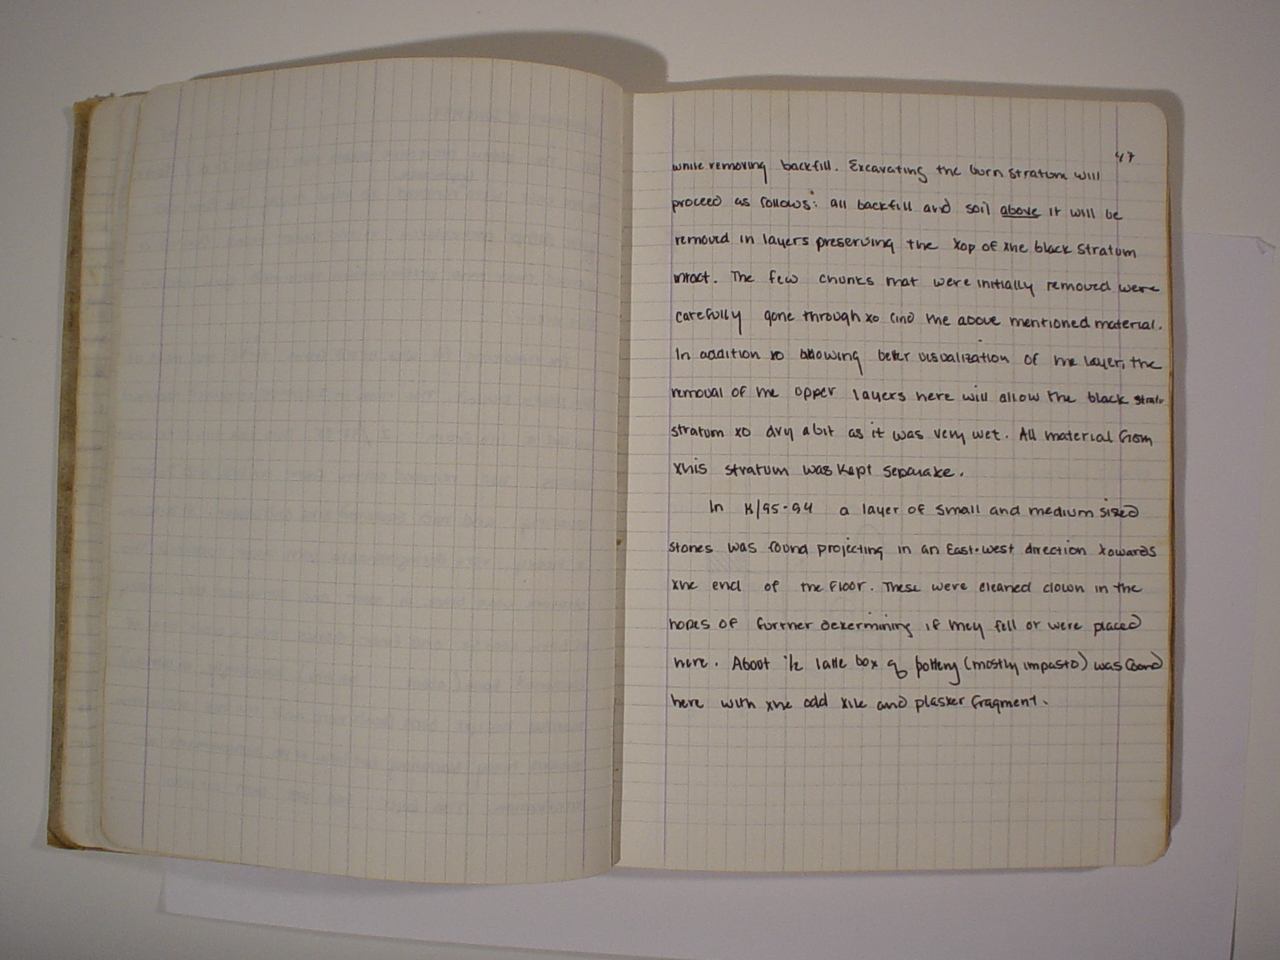 47
while removing backfill. Excavating the burn stratum will
proceed as follows: all backfill and soil above it will be
removed in layers preserving the top of the black stratum
intact. The few chunks that were initially removed were
carefully gone through to find the above mentioned material.
In addition to allowing better visualization of the layer, the
removal of the upper layers here will allow the black strat
stratum to dry a bit as it was very wet. All material from
this stratum was kept separate.
In K/95-94 a layer of small and medium sized
stones was found projecting in an East-west direction towards
the end of the floor. These were cleaned down in the
hopes of further determining if they fell or were placed
here. About 1/2 latte box of pottery (mostly impasto) was found
here with the odd tile and plaster fragment.